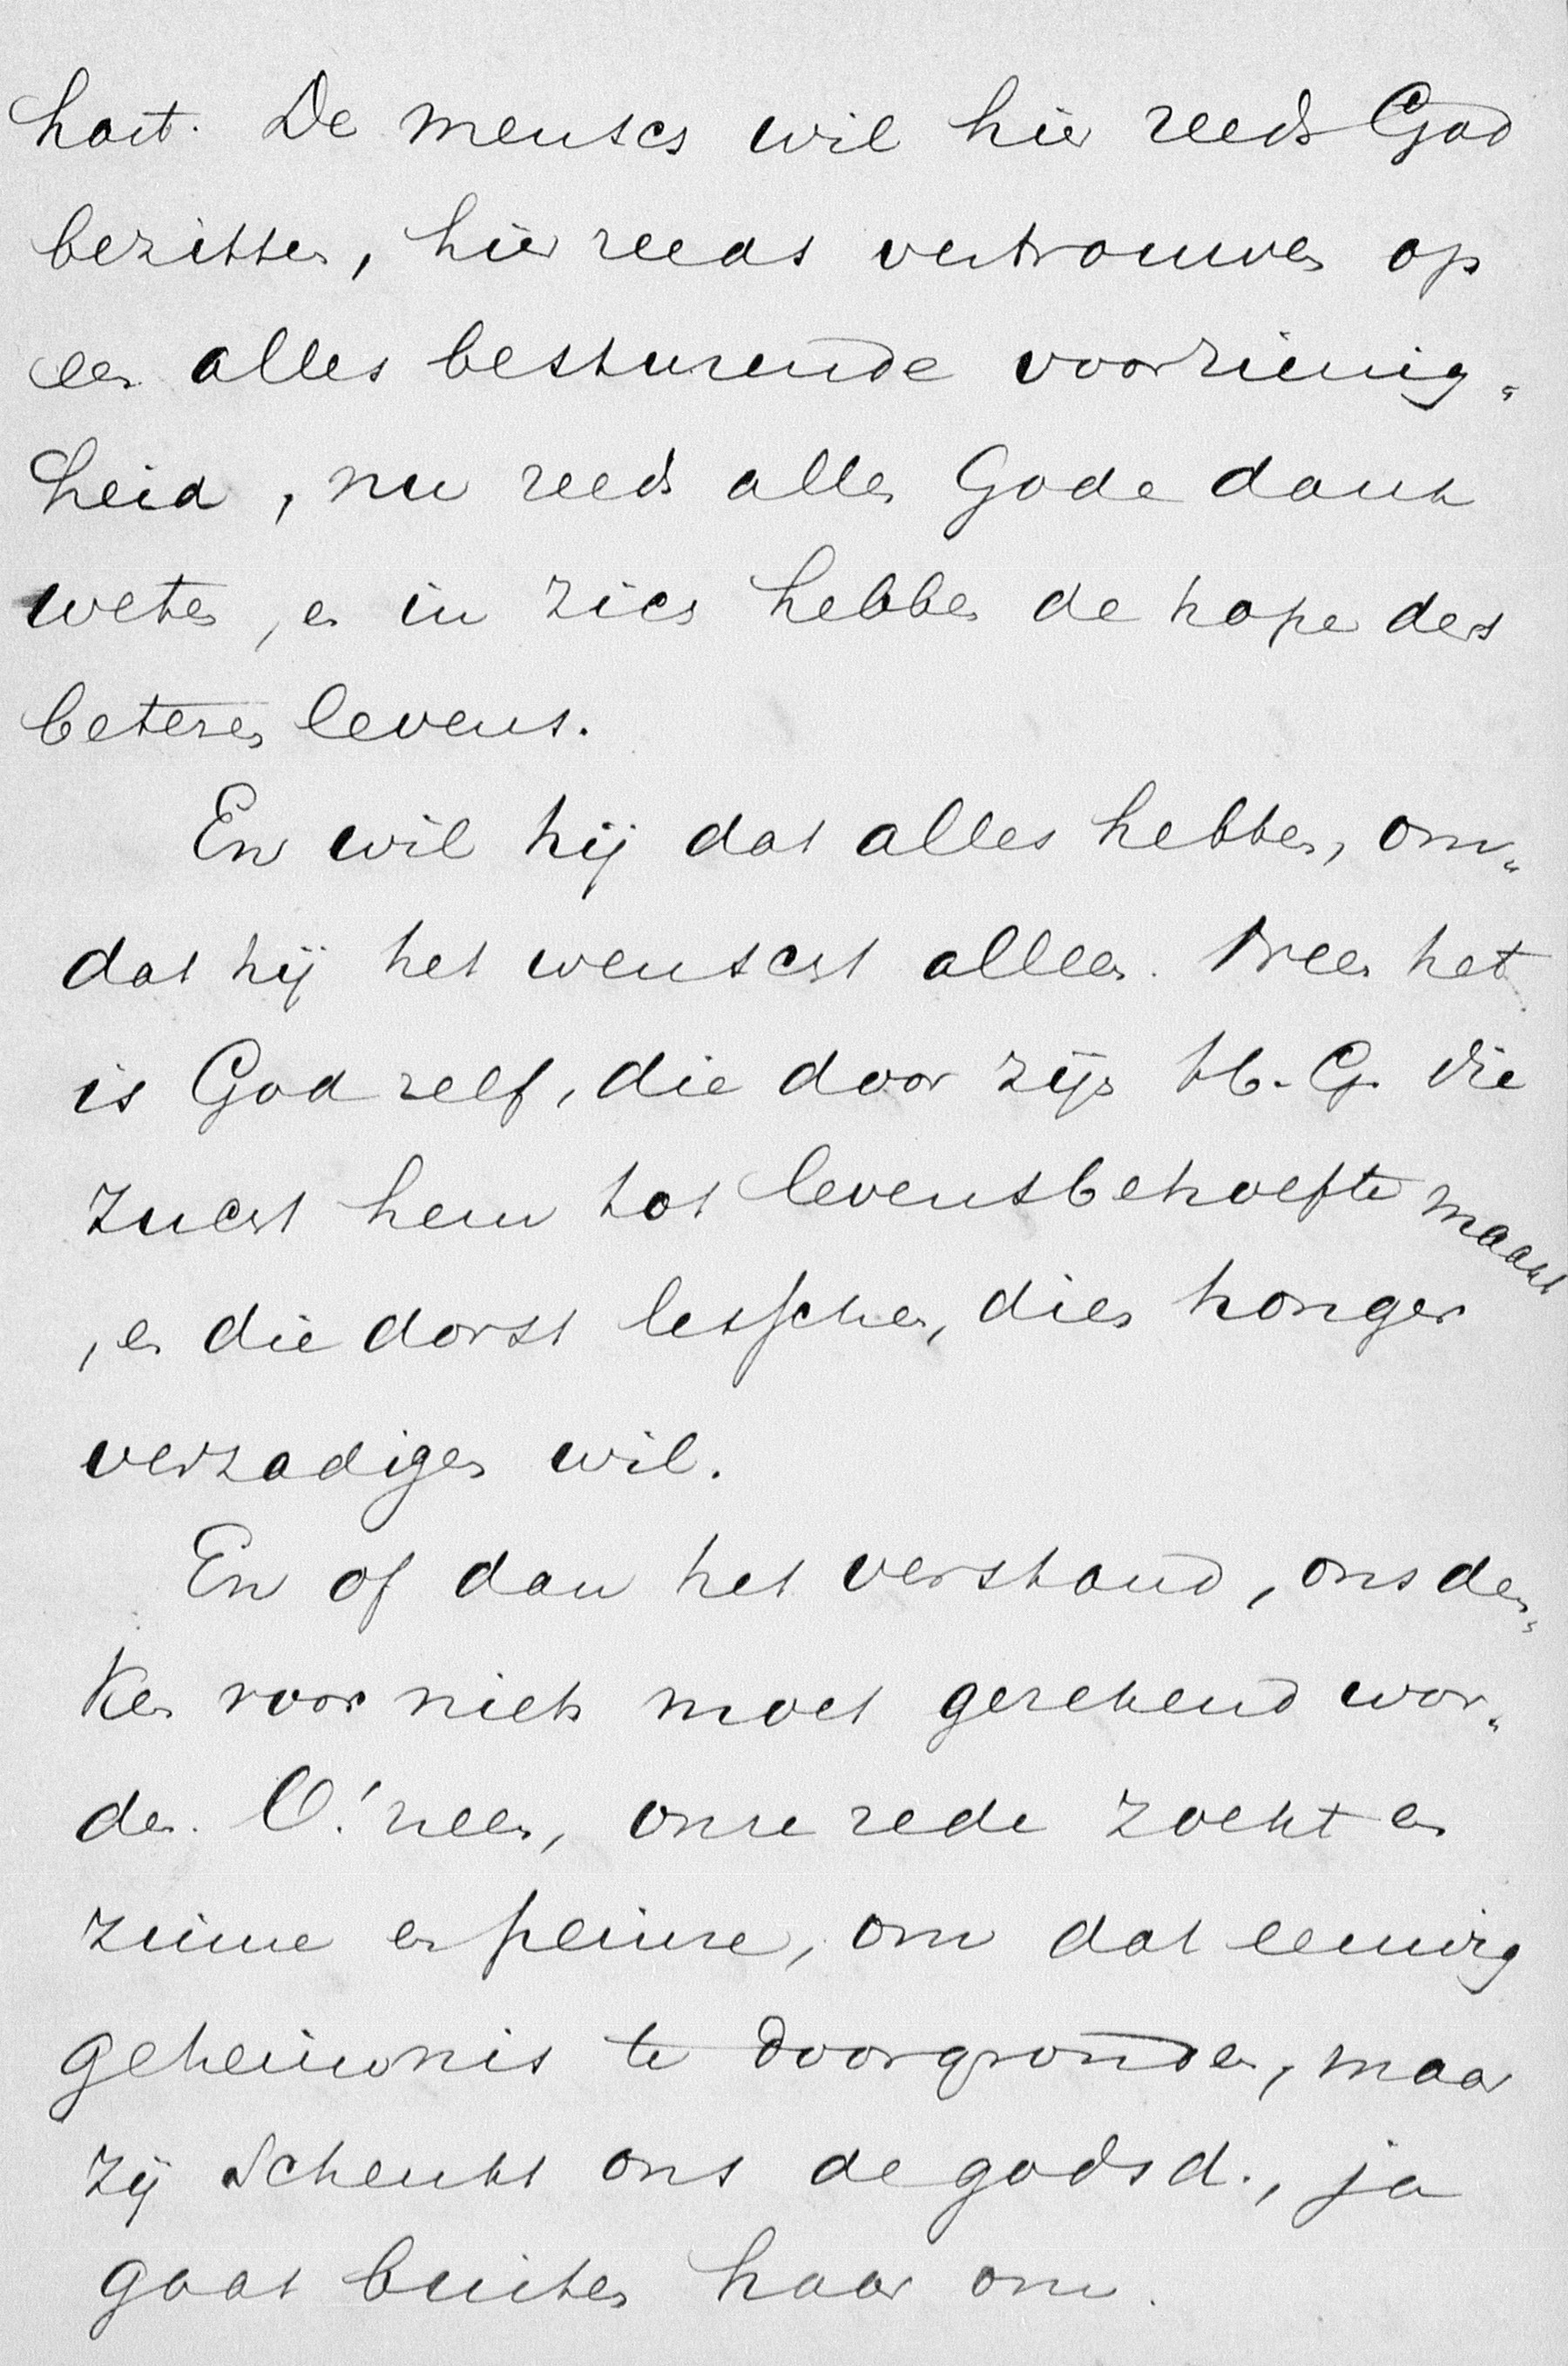 hart. De mensch wil hier reeds God
bezitten, hier reeds vertrouwen op
een alles besturende voorzienig„
heid, nu reeds alles Gode dank
weten, en in zich hebben de hope des
beteren levens.
En wil hij dat alles hebben, om„
dat hij het wenscht alleen. Neen het
is God zelf, die door zijn H. G. die
zucht hem tot levensbehoefte maakt
, en die dorst lesschen, dien honger
verzadigen wil.
En of dan het verstand, ons den„
ken voor niets moet gerekend wor„
den. O! neen, onze rede zoekt en
zinne en peinze, om dat eeuwig
geheimnis te doorgronden, maar
zij schenkt ons de godsd., ja
gaat buiten haar om.